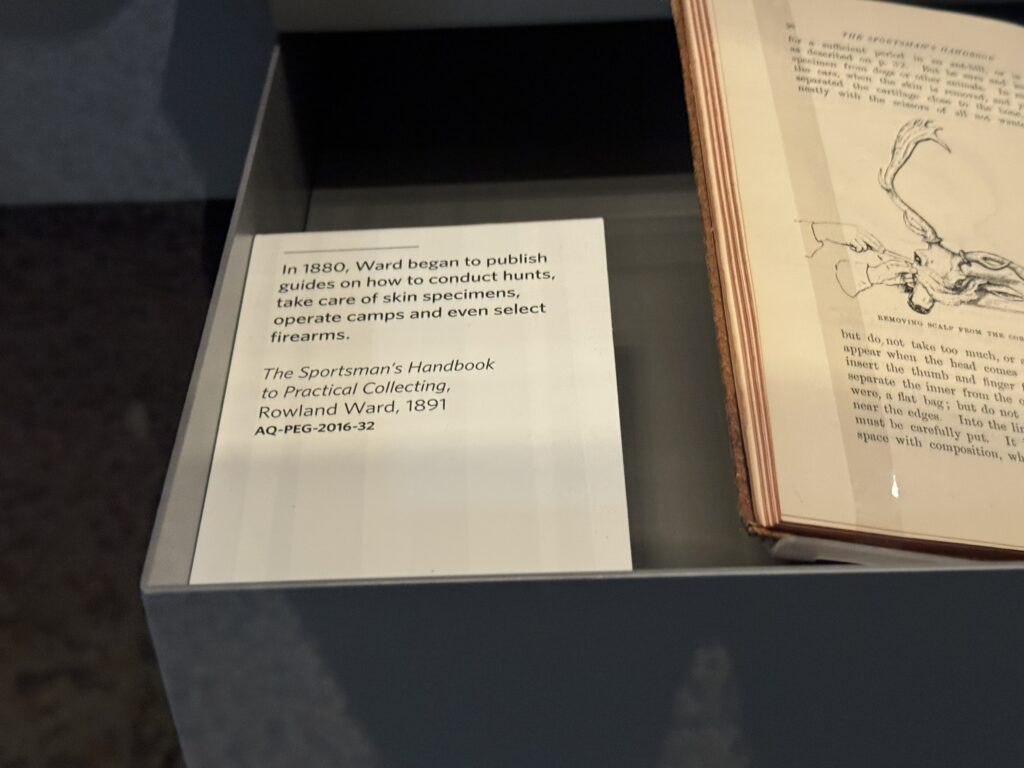 In 1880, Ward began to publish
guides on how to conduct hunts,
take care of skin specimens,
operate camps and even select
firearms.
The Sportsman's Handbook
to Practical Collecting,
Rowland Ward, 1891
AQ-PEG-2016-32
THE SPORTSMAN'S HANDBOOK
for a sufficient period in an ant-hill, or in
as described on p. 37. But be sure and
specimen from dogs or other animals. In
the ears, when the skin is removed, and
separated the cartilage close to the bone,
neatly with the scissors of all not
REMOVING SCALP FROM THE
but do not take too much, or
appear when the head comes
insert the thumb and finger
separate the inner from the
were, a flat bag; but do not
near the edges. Into the
must be carefully put. It
space with composition,